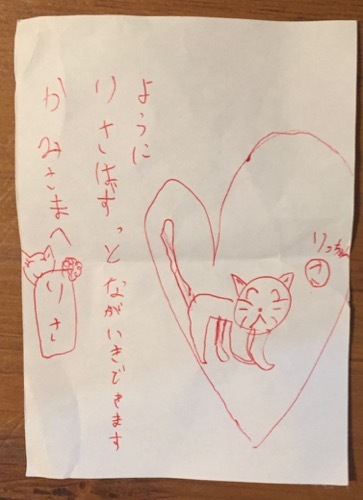 かみさまへ
りさ
りさはずっとながいきできます
ように
りっちゃん